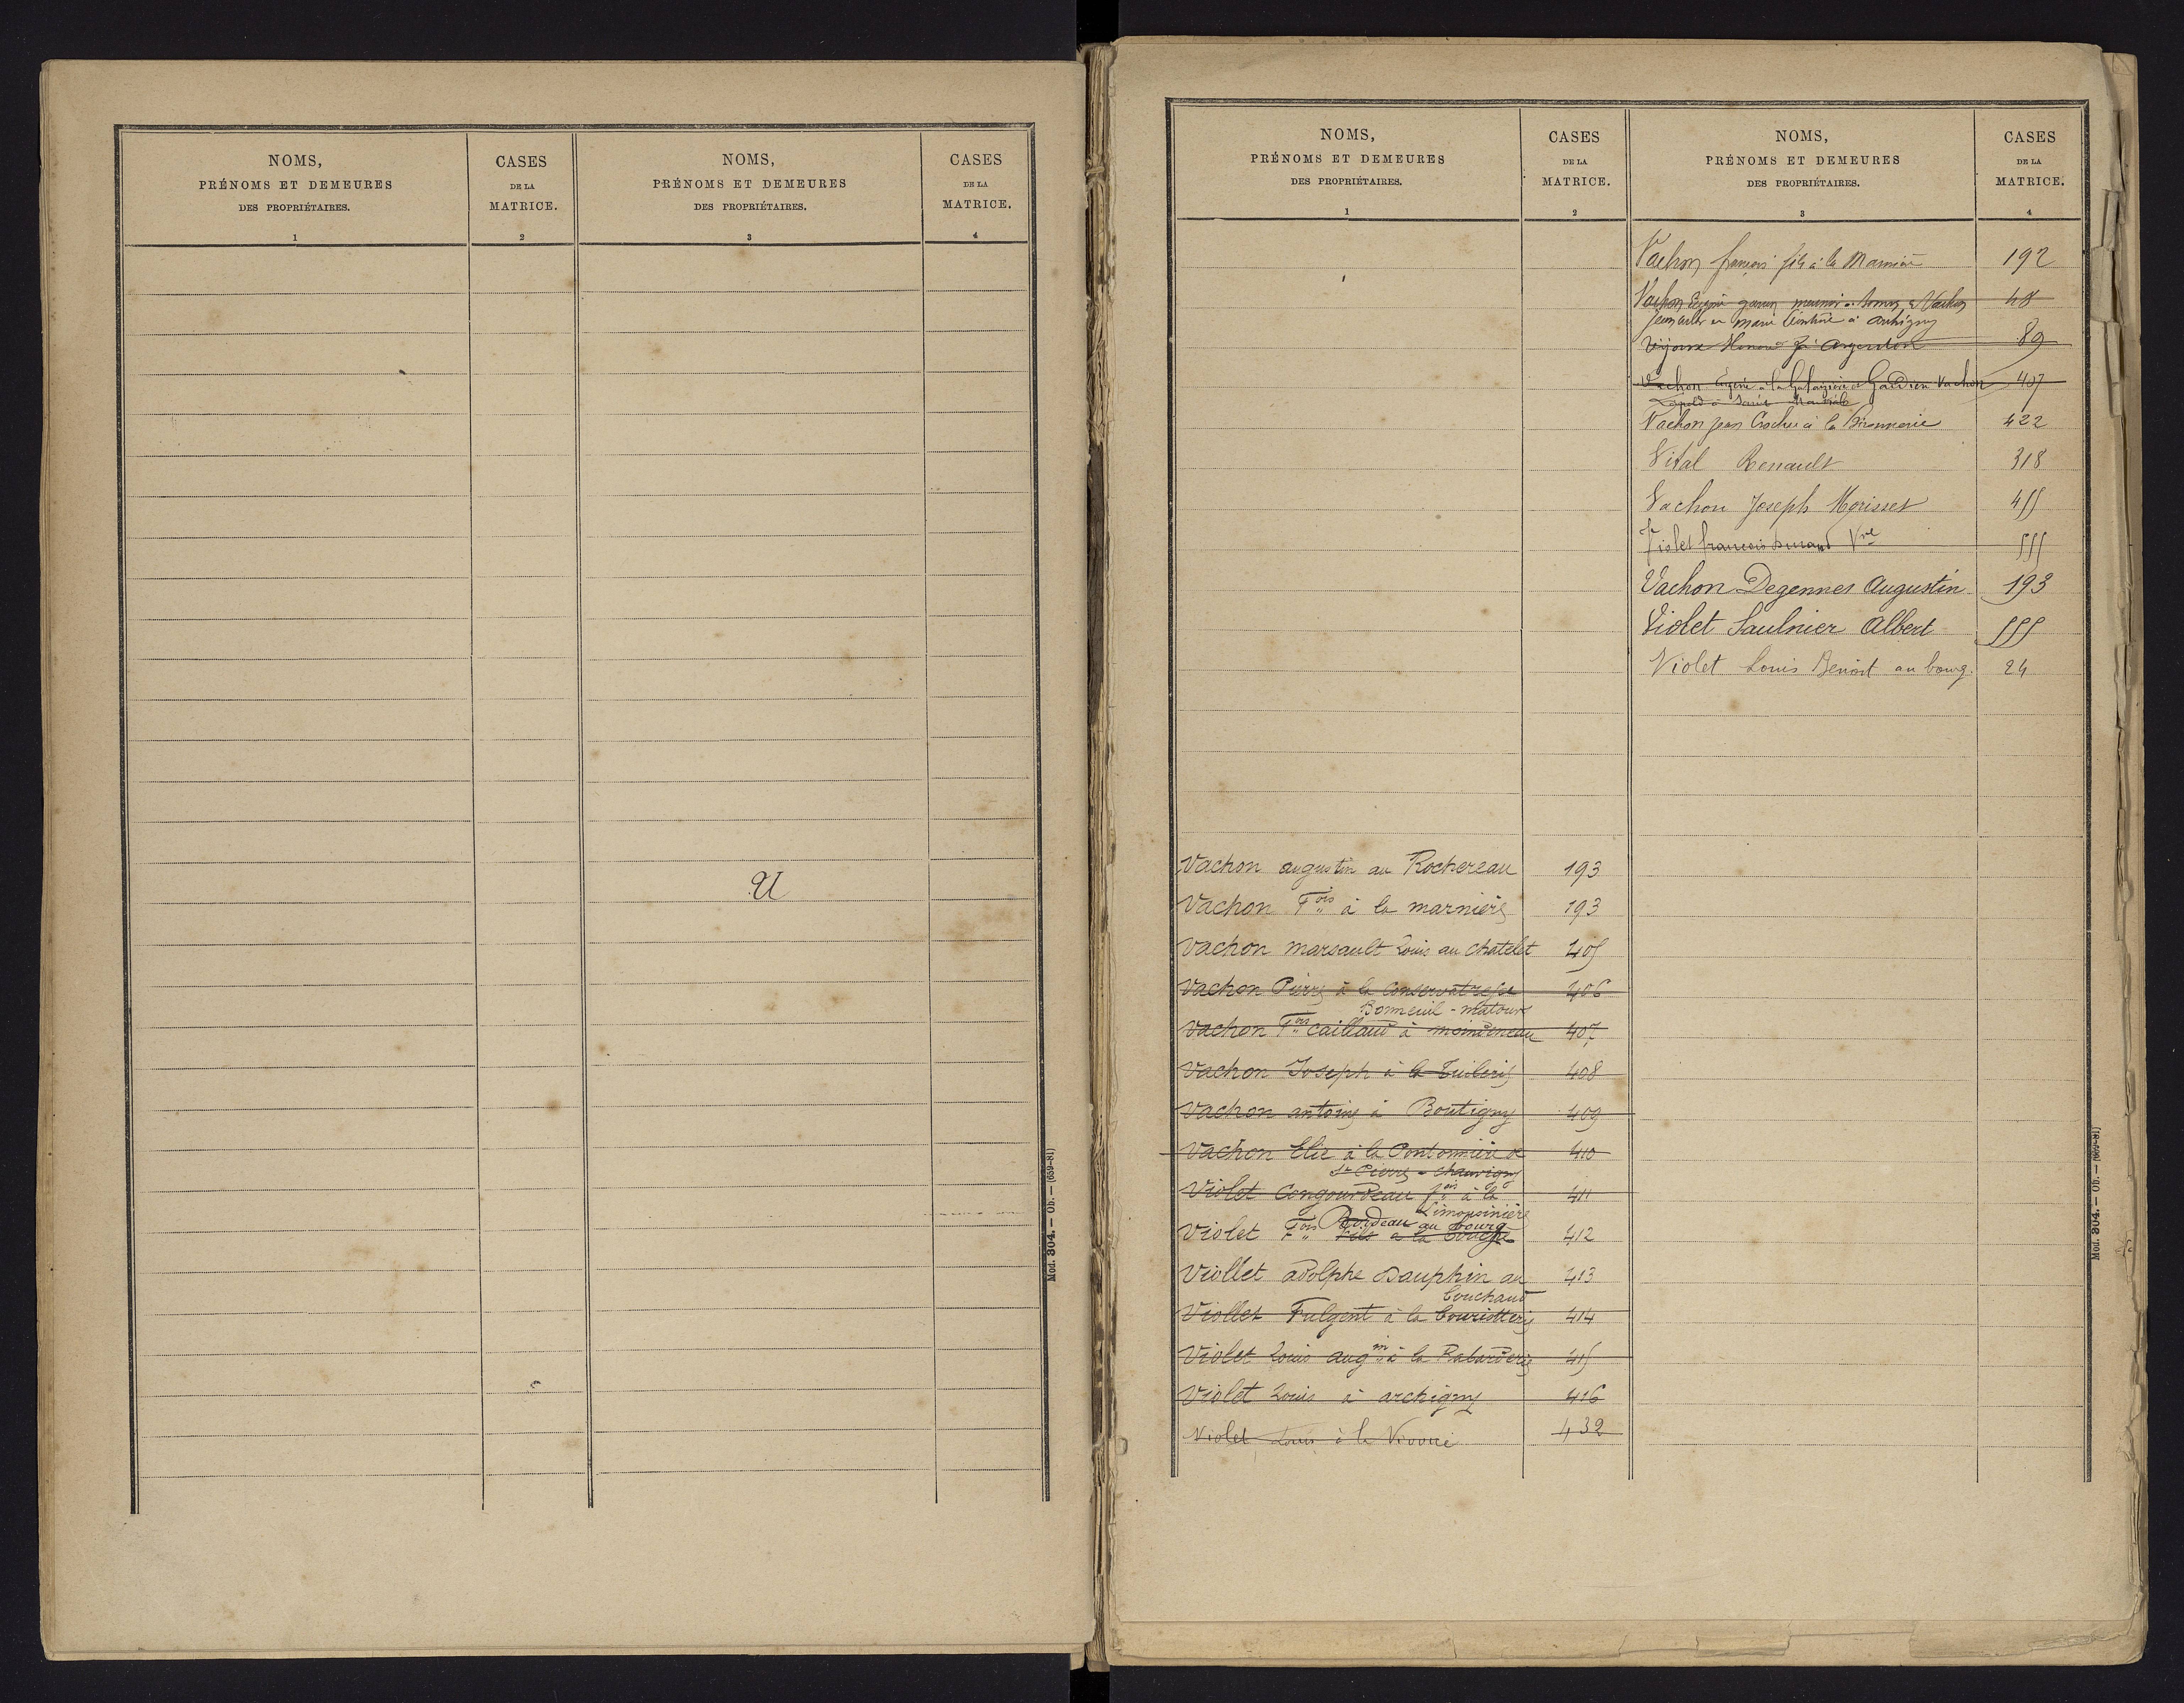 NOMS,
PRÉNOMS ET DEMEURES
DES PROPRIÉTAIRES.
1
CASES
DE LA
MATRICE.
2
NOMS,
PRÉNOMS ET DEMEURES
DES PROPRIÉTAIRES.
3
CASES
DE LA
MATRICE.
4
U
Mod. 304. — Ob. — (659-81)
NOMS,
PRÉNOMS ET DEMEURES
DES PROPRIÉTAIRES.
1
CASES
DE LA
MATRICE.
2
Vachon augustin au Rochereau 193
Vachon Fois à la marnière 193
Vachon marsault Louis au chatelet 405
Vachon Pierre à la Conservatresse 406
Bonneuil-matours
Vachon Fois caillaud à moindineau 407
Vachon Joseph à la Tuilerie 408
Vachon antoine à Boutigny 409
Vachon Elie à la Pontonnière de 410
St Pierre - chauvigny
Violet Congourdeau fois à la 411
Limousinière
Bordeau au bourg
Violet Fois fils à la 412
Viollet adolphe Dauphin au 413
Couchaud
Viollet Fulgent à la Couriotterie 414
Violet Louis augin à la Rabarderie 415
Violet Louis à archigny 416
Violet Louis à la 432
NOMS,
PRÉNOMS ET DEMEURES
DES PROPRIÉTAIRES.
3
CASES
DE LA
MATRICE.
4
Vachon françois fils à la Marnière 192
Vachon Eugène garçon meunier à & Vachon 48
Jean et marie à archigny
à argenton 89
Vachon Eugène à la et Gardien Vachon 407
Léopold à
Vachon Jean Crochu à la Bironnerie 422
Vital Renault 318
Vachon Joseph Morisset 455
Violet françois Durand Vve 555
Vachon Degennes Augustin 193
Violet Saulnier Albert 555
Violet Louis Benoist au bourg. 24
Mod. 304. — Ob. — (669-81)